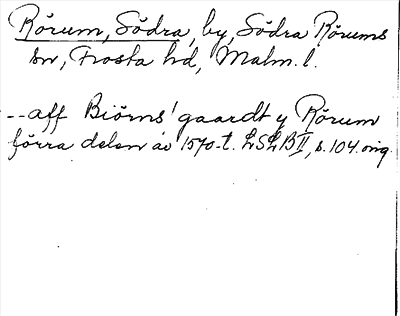 Rörum, Södra, by, Södra Rörums
sn, Frosta hd, Malm. l.
--aff Biörns' gaardt y Rörum
förra delen av 1570-t. LSLB II, s. 104. orig.